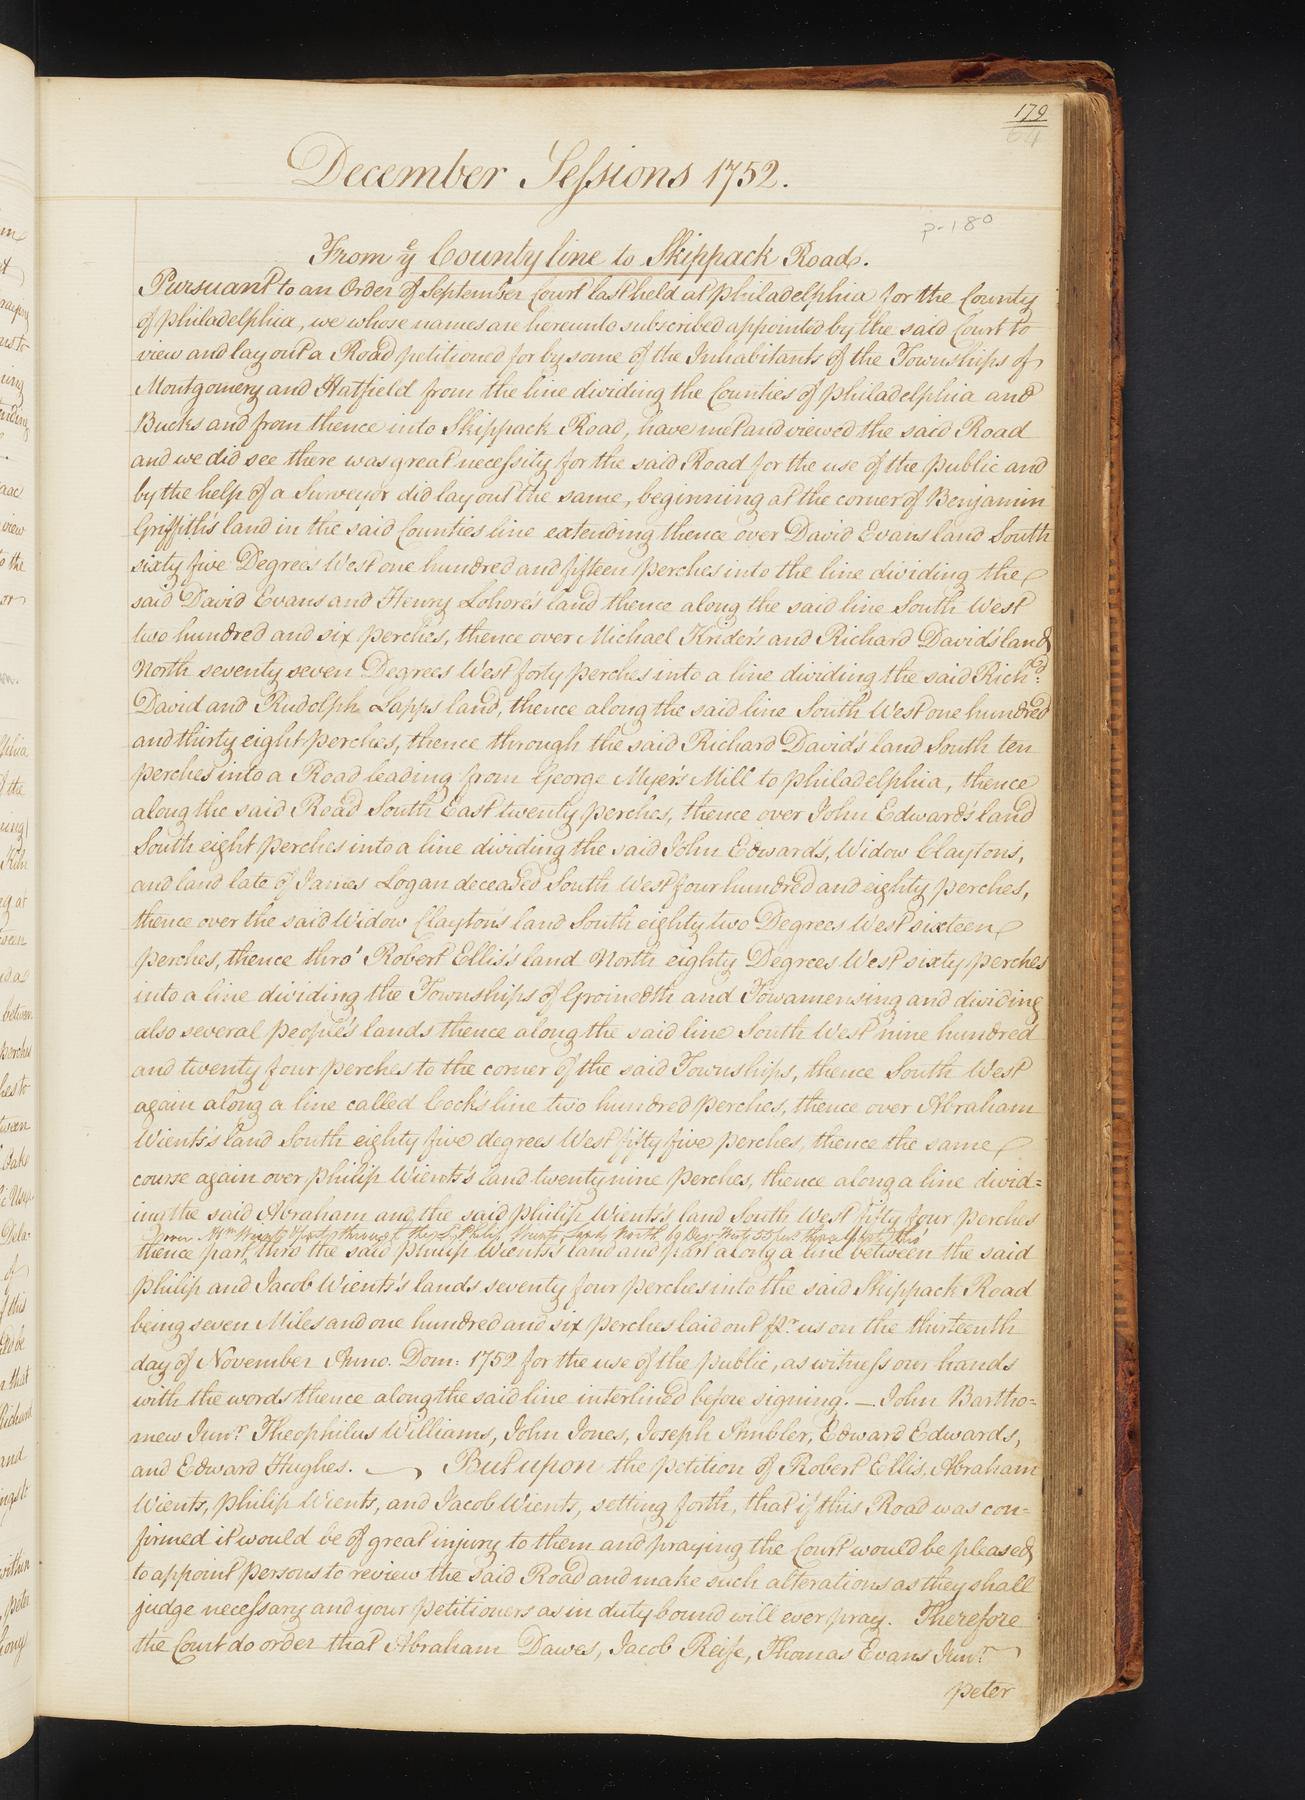 179
64
December Sessions 1752.
p-180
From ye County line to Skippack Road.
Pursuant to an Order of September Court last held at Philadelphia for the County
of Philadelphia, we whose names are hereunto subscribed appointed by the said Court to
view and lay out a Road petitioned for by some of the Inhabitants of the Townships of
Montgomery and Hatfield from the line dividing the Counties of Philadelphia and
Bucks and from thence into Skippack Road, have met and viewed the said Road
and we did see there was great necessity for the said Road for the use of the Public and
by the help of a Surveyor did lay out the same, beginning at the corner of Benjamin
Griffith's land in the said Counties line extending thence over David Evans land South
sixty five Degrees West one hundred and fifteen perches into the line dividing the
said David Evans and Henry Lohore's land thence along the said line South West
two hundred and six perches, thence over Michael Krider's and Richard David's land
North seventy seven Degrees West forty perches into a line dividing the said Richd.
David and Rudolph Lapps land, thence along the said line South West one hundred
and thirty eight perches, thence through the said Richard David's land South ten
perches into a Road leading from George Myer's Mill to Philadelphia, thence
along the said Road South East twenty perches, thence over John Edward's land
South eight perches into a line dividing the said John Edward's, Widow Clayton's,
and land late of James Logan deceased South West four hundred and eighty perches,
thence over the said Widow Clayton's land South eighty two Degrees West sixteen
perches, thence thro' Robert Ellis's land North eighty Degrees West sixty perches
into a line dividing the Townships of Groinedth and Towamensing and dividing
also several people's lands thence along the said line South West nine hundred
and twenty four perches to the corner of the said Townships, thence South West
again along a line called Cock's line two hundred perches, thence over Abraham
Wients's land South eighty five degrees West fifty five perches, thence the same
course again over Philip Wients's land twenty nine perches, thence along a line divid=
ing the said Abraham and the said Philip Wients's land South West fifty four perches
thence part thro the said Philip Wients's land and part along a line between the said
Philip and Jacob Wients's lands seventy four perches into the said Skippack Road
being seven Miles and one hundred and six perches laid out pr. us on the thirteenth
day of November Anno. Dom: 1752 for the use of the public, as witness our hands
with the words thence along the said line interlined before signing. — John Bartho=
mew Junr. Theophilus Williams, John Jones, Joseph Ambler, Edward Edwards,
and Edward Hughes. — But upon the petition of Robert Ellis, Abraham
Wients, Philip Wients, and Jacob Wients, setting forth, that if this Road was con=
firmed it would be of great injury to them and praying the Court would be pleased
to appoint persons to review the said Road and make such alterations as they shall
judge necessary and your petitioners as in duty bound will ever pray. Therefore
the Court do order that Abraham Dawes, Jacob Reife, Thomas Evans Junr.
Peter